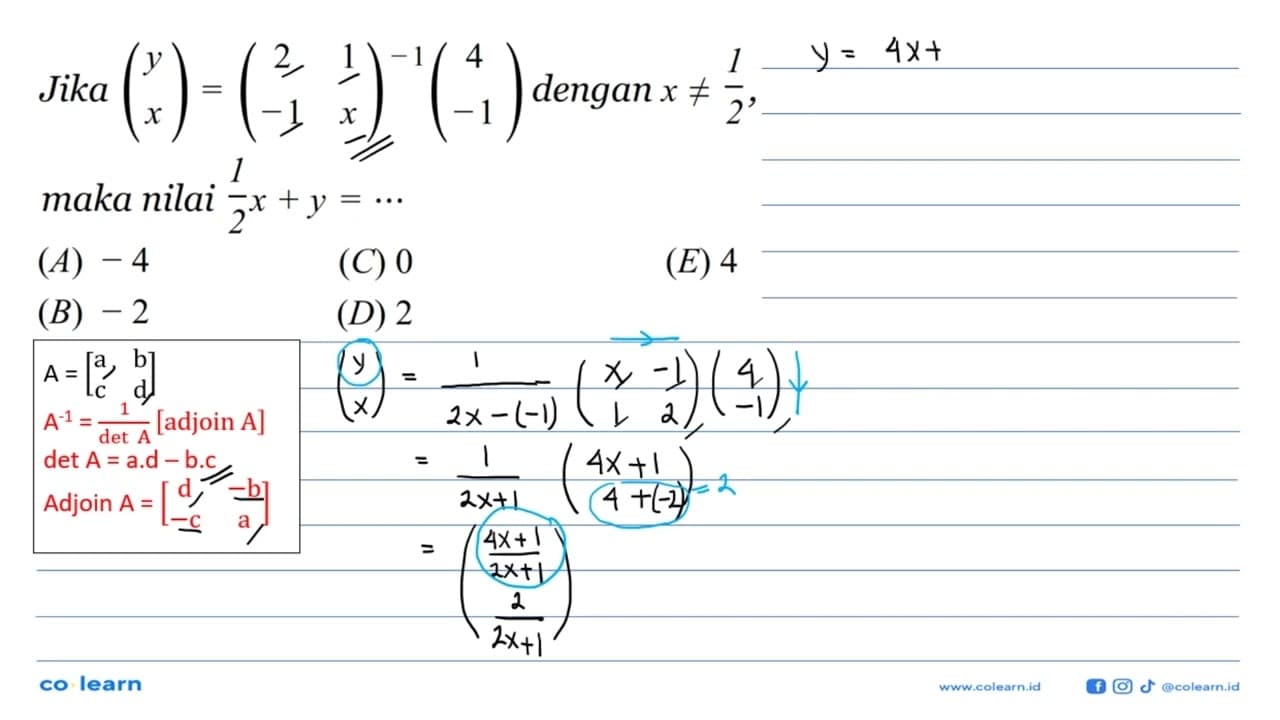 Jika (y x) = (2 1 -1 x)⁻¹ (4 -1) dengan x ≠ 1/2,
y = 4x+
maka nilai 1/2 x + y = ...
(A) - 4 (C) 0 (E) 4
(B) - 2 (D) 2
A = [a b c d]
A⁻¹ = 1/det A [adjoin A]
det A = a.d – b.c
Adjoin A = [d -b -c a]
(y x) = 1/2x-(-1) (x -1 1 2) (4 -1)
= 1/2x+1 (4x+1 4+(-2)) = 2
= (4x+1/2x+1 2/2x+1)
co learn
www.colearn.id @colearn.id